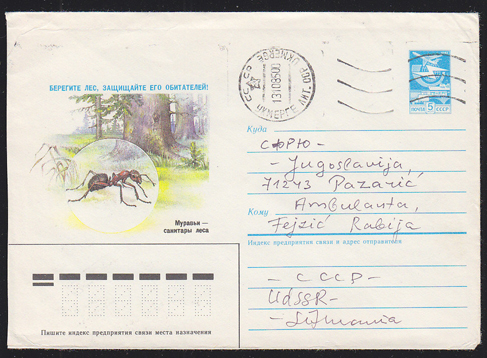 БЕРЕГИТЕ ЛЕС, ЗАЩИЩАЙТЕ ЕГО ОБИТАТЕЛЕЙ!
UKMERGE
УКМЕРГЕ ЛИТ. ССР
ПОЧТА 5 СССР
Куда
СФРЮ-
- Jugoslavija,
71243 Pazarić
Ambulanta,
Кому
Fejzić Rabija
Индекс предприятия связи и адрес отправителя
Муравьи —
санитары леса
- СССР -
UdSSR-
- Lithmania
Пишите индекс предприятия связи места назначения